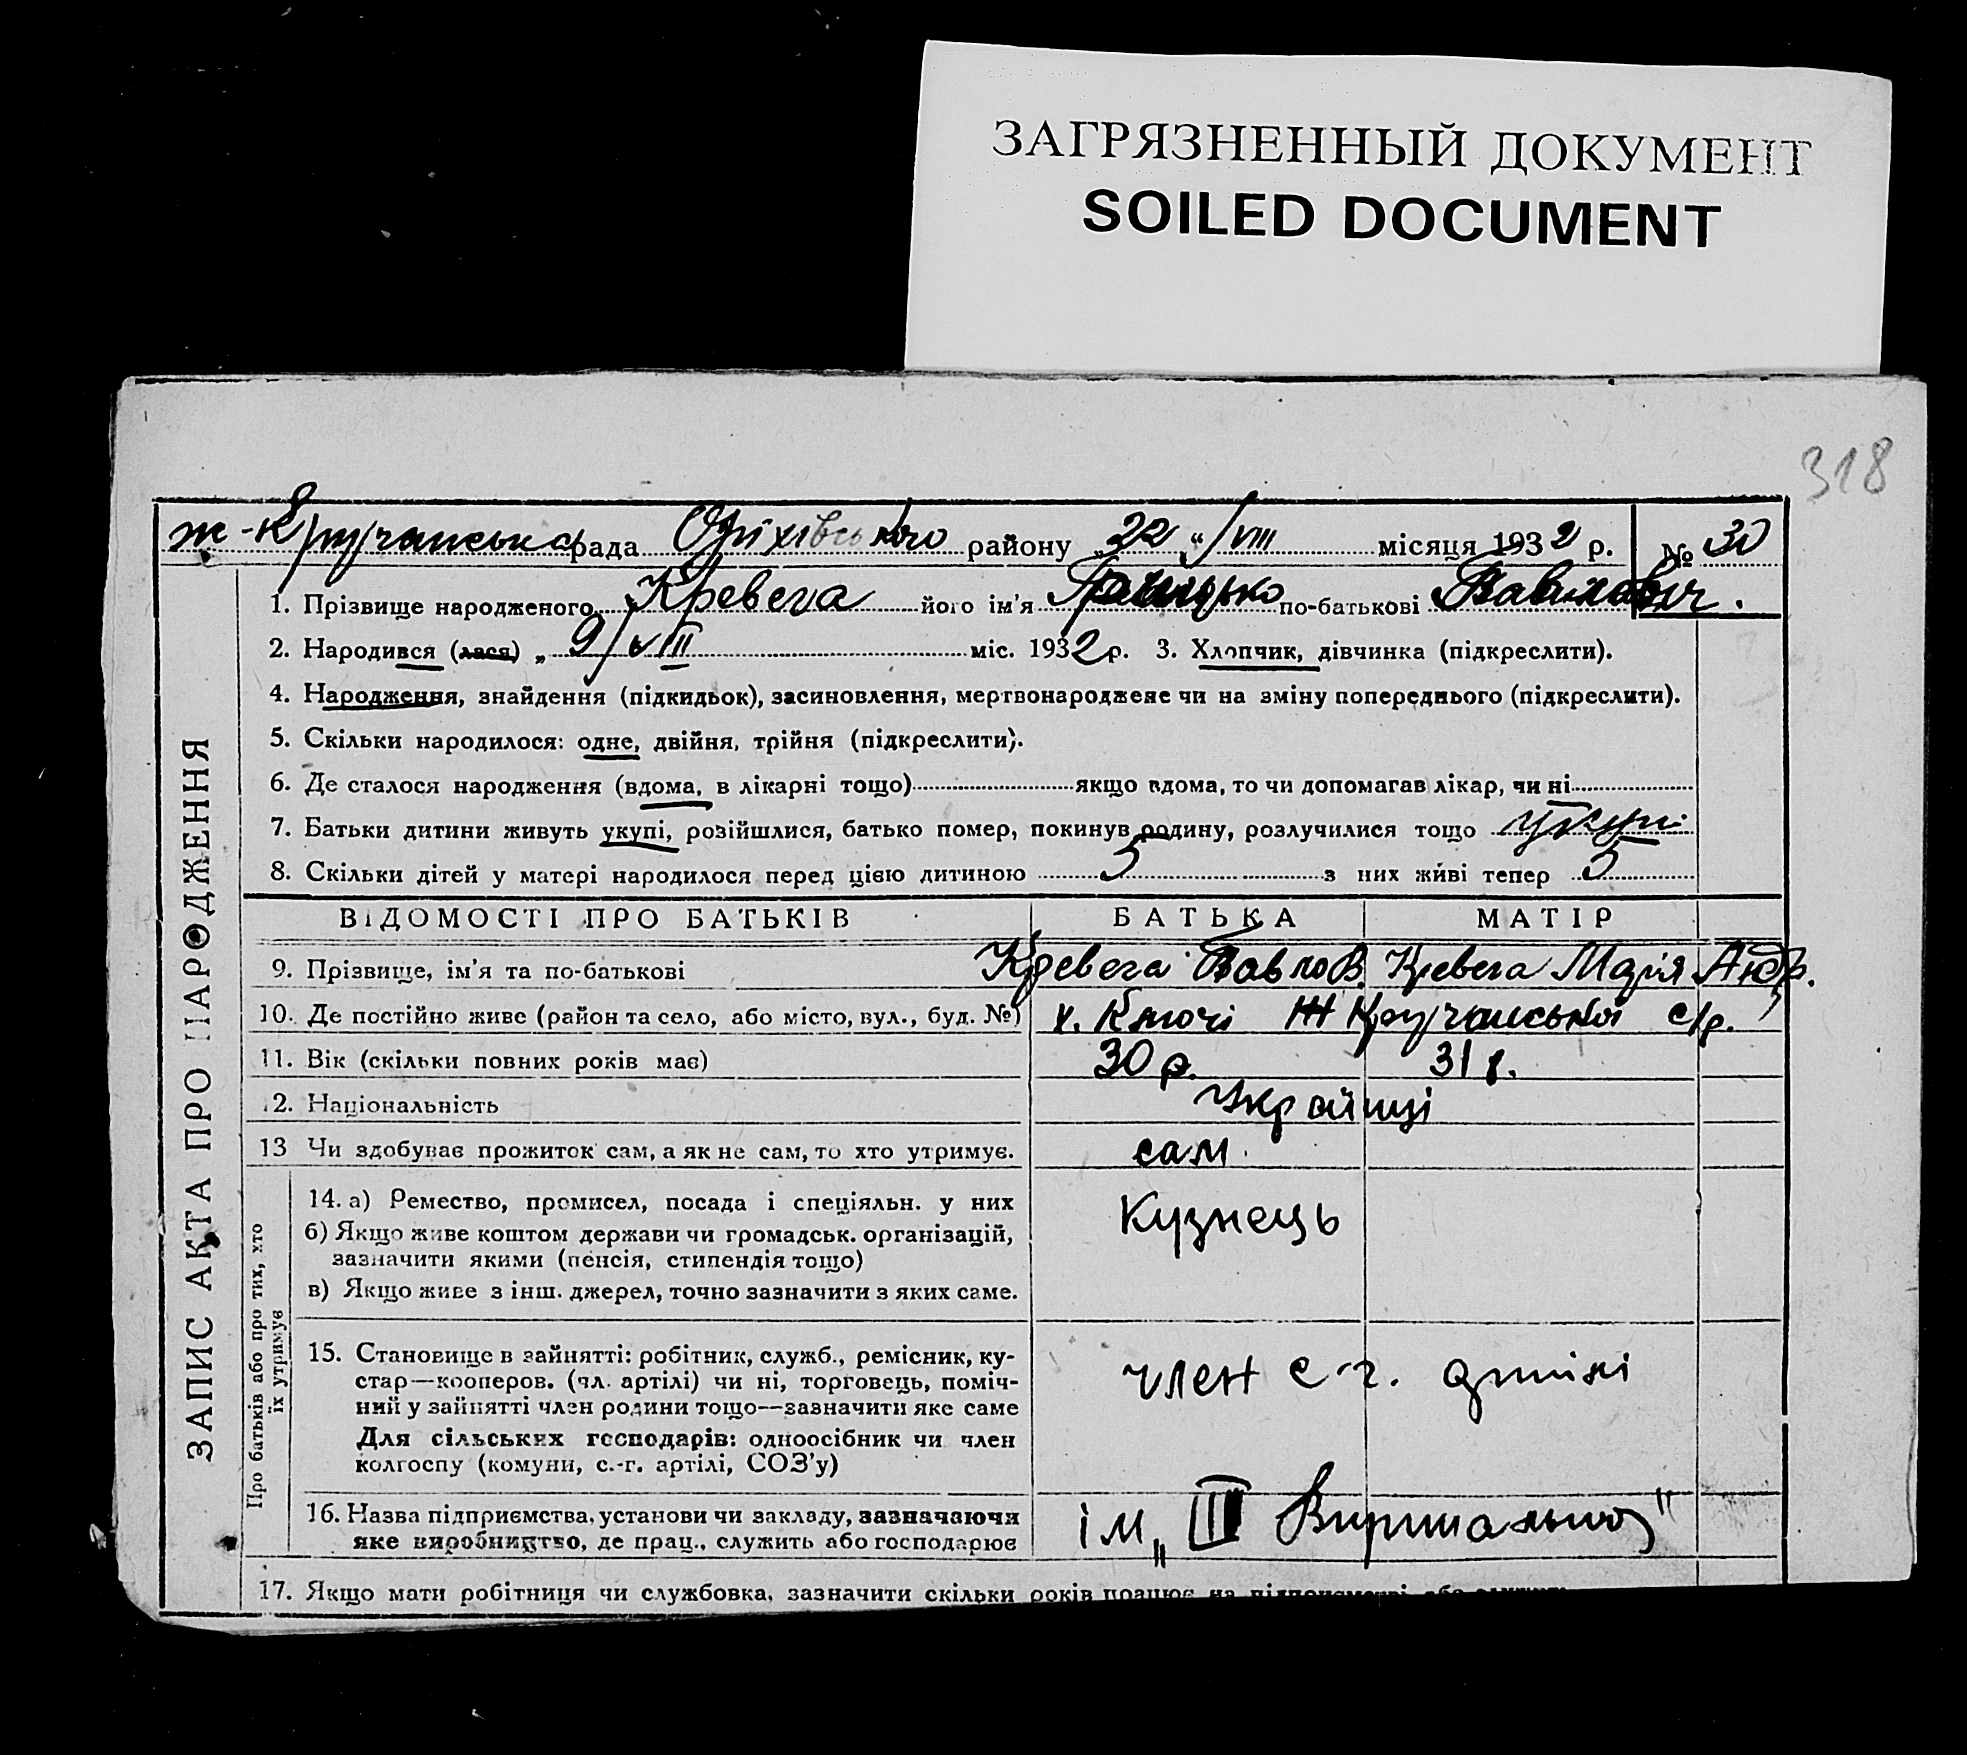 ЗАГРЯЗНЕННЫЙ ДОКУМЕНТ
SOILED DOCUMENT
318
Ж-Кручанська рада Оріхівського району „22“/VIII місяця 1932 р. № 30
1. Прізвище народженого Кревега його ім'я Грицько по-батькові Павлович.
2. Народився (лася) „ 9/VIII міс. 1932 р. 3. Хлопчик, дівчинка (підкреслити).
4. Народження, знайдення (підкидьок), засиновлення, мертвонароджене чи на зміну попереднього (підкреслити).
5. Скільки народилося: одне, двійня, трійня (підкреслити).
6. Де сталося народження (вдома, в лікарні тощо) якщо вдома, то чи допомагав лікар, чи ні
7. Батьки дитини живуть укупі, розійшлися, батько помер, покинув родину, розлучилися тощо укупі
8. Скільки дітей у матері народилося перед цією дитиною 5 з них живі тепер 5
ЗАПИС АКТА ПРО НАРОДЖЕННЯ
ВІДОМОСТІ ПРО БАТЬКІВ БАТЬКА МАТІР
9. Прізвище, ім'я та по-батькові Кревега Павло В. Кревега Марія Андр.
10. Де постійно живе (район та село, або місто, вул., буд. №) х. Ключі Ж Кручанської с/р.
11. Вік (скільки повних років має) 30 р. 31 р.
12. Національність Українці
13 Чи здобуває прожиток сам, а як не сам, то хто утримує. сам.
Про батьків або про тих, хто
їх утримує
14. а) Ремество, промисел, посада і спеціяльн. у них Кузнець
б) Якщо живе коштом держави чи громадськ. організацій,
зазначити якими (пенсія, стипендія тощо)
в) Якщо живе з інш. джерел, точно зазначити з яких саме.
15. Становище в зайнятті: робітник, служб., ремісник, ку-
стар—кооперов. (чл. артілі) чи ні, торговець, поміч-
ний у зайнятті член родини тощо—зазначити яке саме
член с г. артілі
Для сільських господарів: одноосібник чи член
колгоспу (комуни, с.-г. артілі, СОЗ'у)
16. Назва підприємства, установи чи закладу, зазначаючи
яке виробництво, де прац., служить або господарює
ім „III Вирішальной“
17. Якщо мати робітниця чи службовка, зазначити скільки років працює на підприємстві або